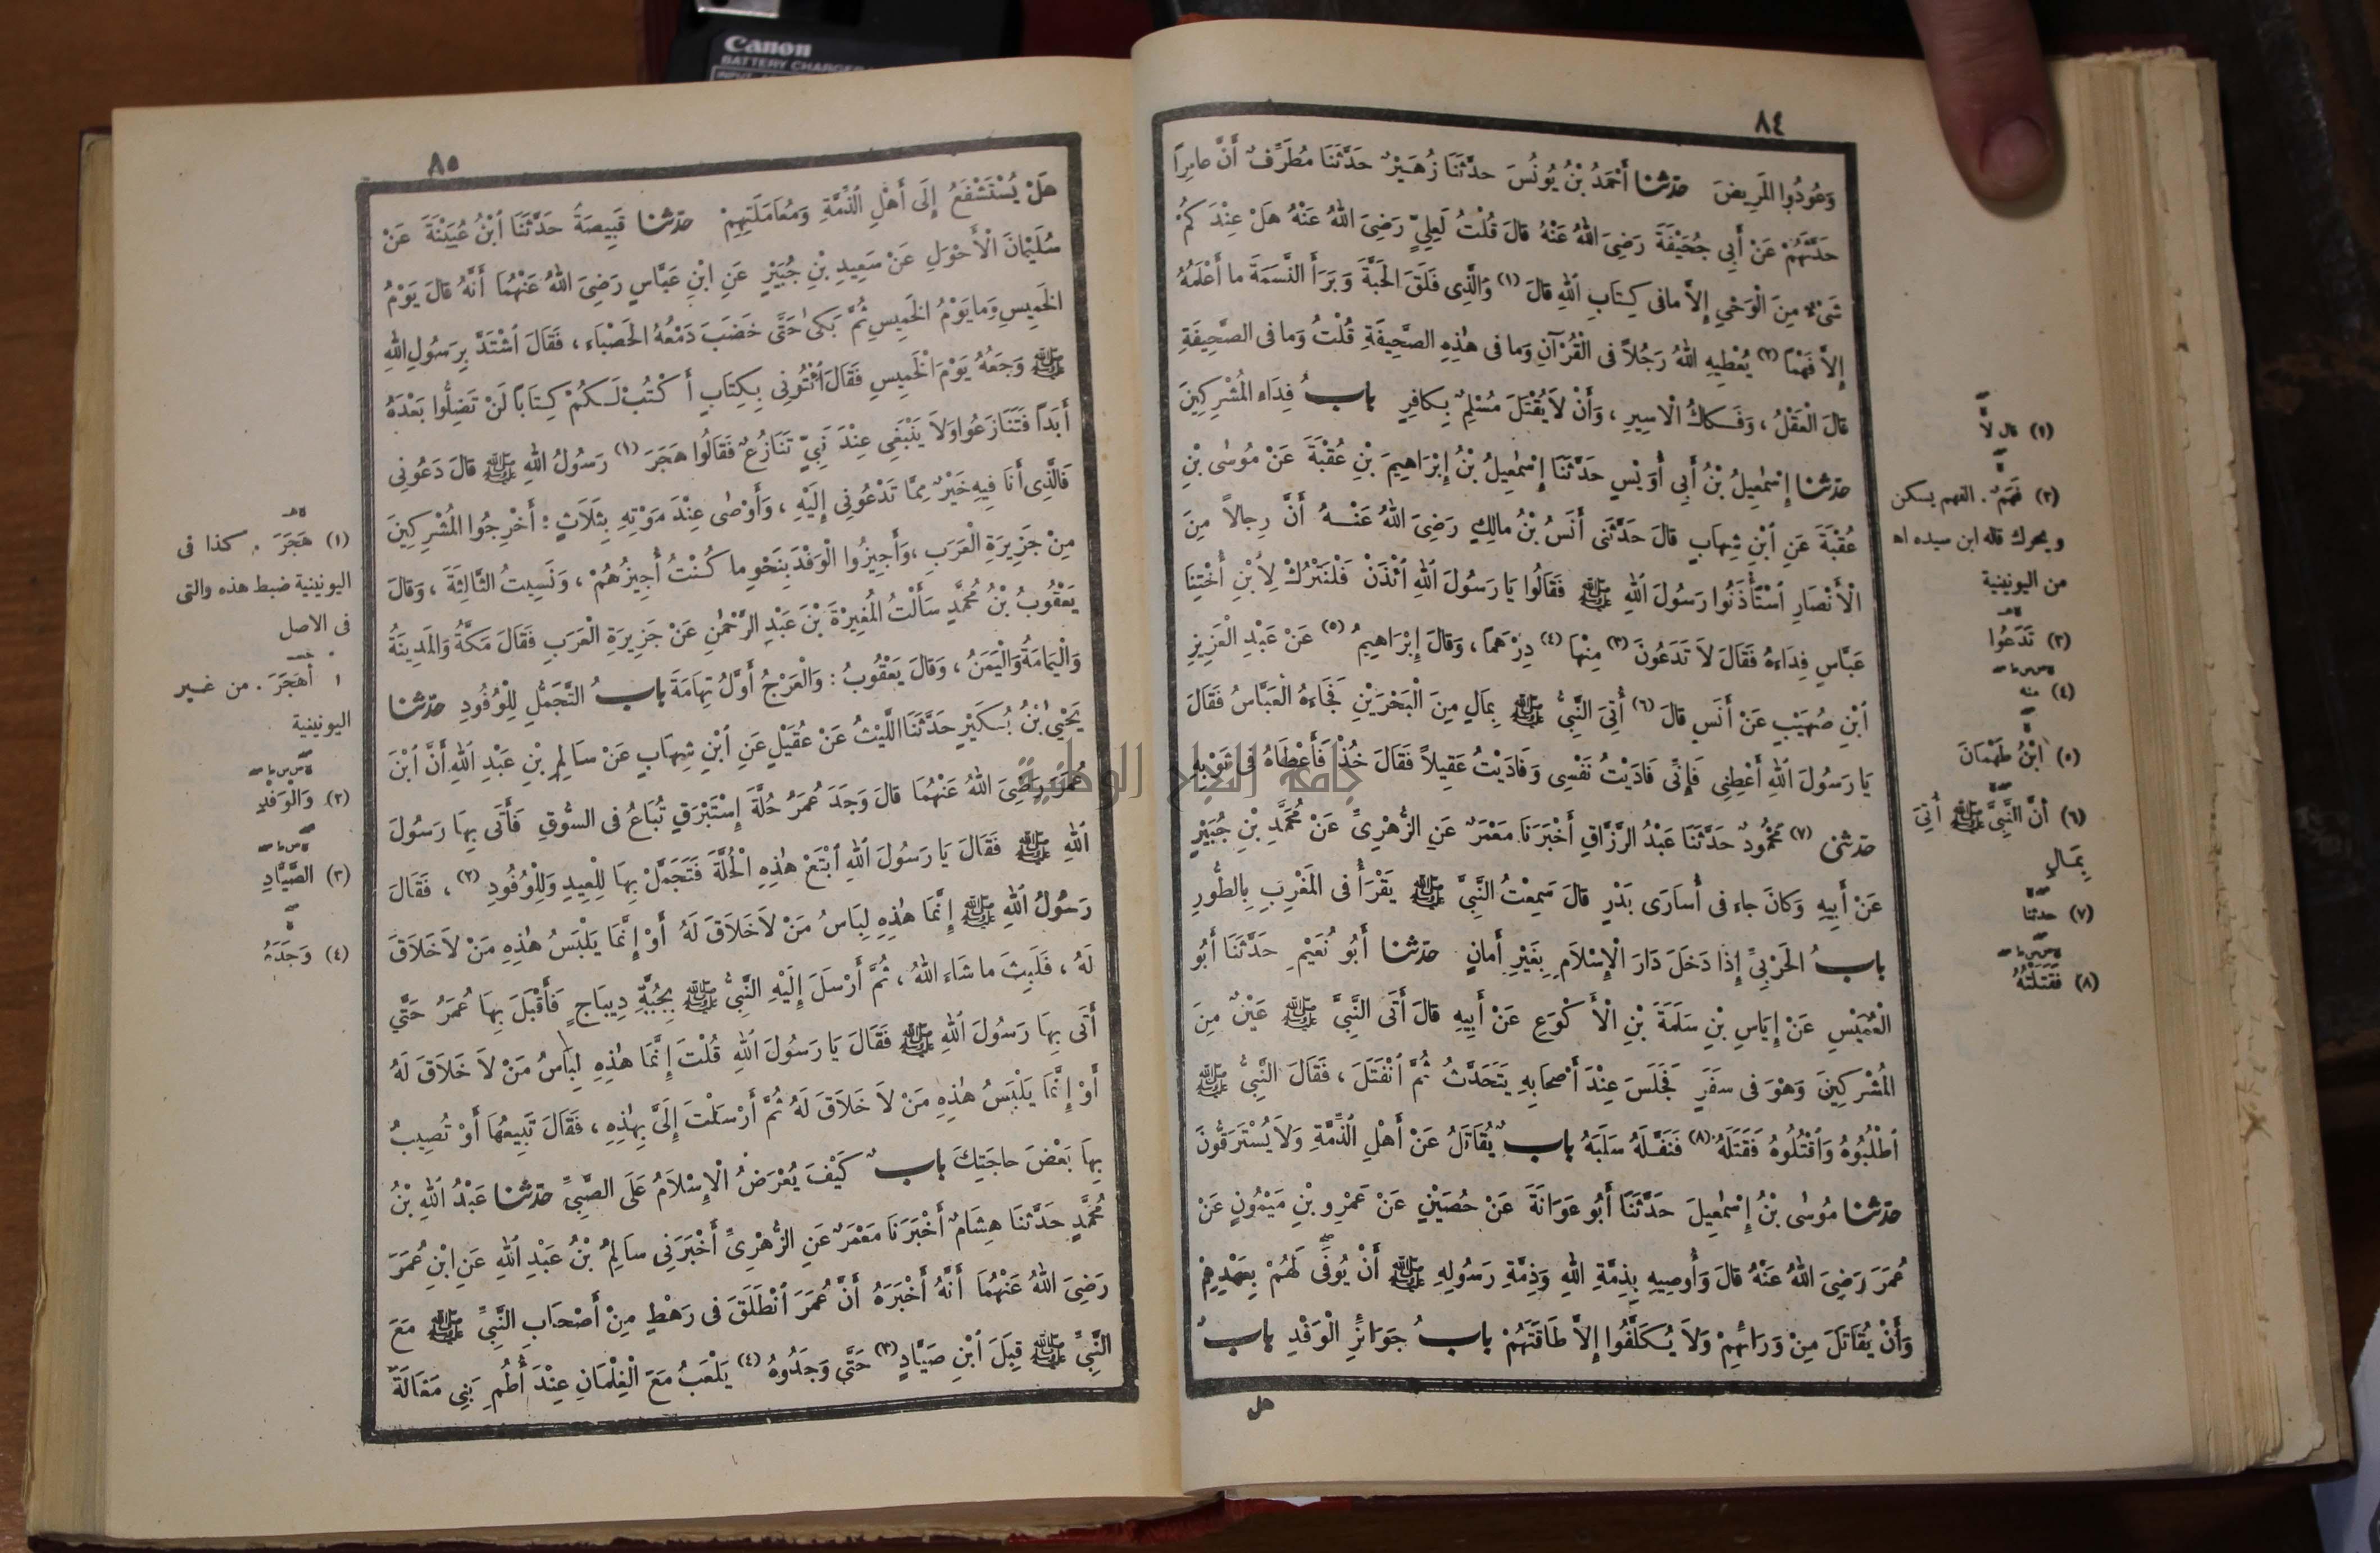 Canon
BATTERY CHARGER
INPUT
٨٤
وَعُودُوا المَرِيضَ حدّثنا أَحْمَدُ بْنُ يُونُسَ حَدَّثَنَا زُهَيْرٌ حَدَّثَنَا مُطَرِّفٌ أَنَّ عامِراً
حَدَّثَهُمْ عَنْ أَبِي جُحَيْفَةَ رَضِيَ اللهُ عَنْهُ قالَ قُلْتُ لِعَلِيٍّ رَضِيَ اللهُ عَنْهُ هَلْ عِنْدَ كُمْ
شَىْءٌ مِنَ الْوَحْيِ إِلاَّ مافِى كِتَابِ اللهِ قالَ (١) وَالَّذِى فَلَقَ الحَبَّةَ وَبَرَأَ النَّسَمَةَ ما أَعْلَمُهُ
إِلاَّ فَهْماً (٢) يُعْطِيهِ اللهُ رَجُلاً فى الْقُرْآنِ وَما فى هٰذِهِ الصَّحِيفَةِ قُلْتُ وَما فى الصَّحِيفَةِ
قالَ الْعَقْلُ ، وَفَكاكُ الْاسِيرِ ، وَأَنْ لاَ يُقْتَلَ مُسْلِمٌ بِكافِرٍ بابُ فِدَاءِ المُشْرِكِينَ
حدّثنا إِسْمٰعِيلُ بْنُ أَبِي أُوَيْسٍ حَدَّثَنَا إِسْمٰعِيلُ بْنُ إِبْرَاهِيمَ بْنِ عُقْبَةَ عَنْ مُوسٰى بْنِ
عُقْبَةَ عَنِ ابْنِ شِهابٍ قالَ حَدَّثَنى أَنَسُ بْنُ مالِكٍ رَضِيَ اللهُ عَنْهُ أَنَّ رِجالاً مِنَ
الْأَنْصَارِ اسْتَأْذَنُوا رَسُولَ اللهِ ﷺ فَقَالُوا يَا رَسُولَ اللهِ ائْذَنْ فَلْنَتْرُكْ لِاُبْنِ أُخْتِنَا
عَبَّاسٍ فِدَاءَهُ فَقَالَ لاَ تَدَعُونَ (٣) مِنْهَا (٤) دِرْهَماً ، وَقالَ إِبْرَاهِيمُ (٥) عَنْ عَبْدِ الْعَزِيزِ
ابْنِ صُهَيْبٍ عَنْ أَنَسٍ قالَ (٦) أُتِىَ النَّبِيُّ ﷺ بِمَالٍ مِنَ الْبَحْرَيْنِ فَجَاءَهُ الْعَبَّاسُ فَقَالَ
يَا رَسُولَ اللهِ أَعْطِنِى فَإِنِّى فَادَيْتُ نَفْسِى وَفَادَيْتُ عَقِيلاً فَقَالَ خُذْ فَأَعْطَاهُ فى ثَوْبِهِ
حدّثنى (٧) مَحْمُودٌ حَدَّثَنَا عَبْدُ الرَّزَّاقِ أَخْبَرَنَا مَعْمَرٌ عَنِ الزُّهْرِىِّ عَنْ مُحَمَّدِ بْنِ جُبَيْرٍ
عَنْ أَبِيهِ وَكانَ جاء فى أُسارَى بَدْرٍ قالَ سَمِعْتُ النَّبِيَّ ﷺ يَقْرَأُ فى المَغْرِبِ بِالطُّورِ
بابُ الحَرْبِيِّ إِذَا دَخَلَ دَارَ الْإِسْلاَمِ بِغَيْرِ أَمانٍ حدّثنا أَبُو نُعَيْمٍ حَدَّثَنَا أَبُو
الْعُمَيْسِ عَنْ إِيَاسِ بْنِ سَلَمَةَ بْنِ الْأَكْوَعِ عَنْ أَبِيهِ قالَ أَتَى النَّبِيَّ ﷺ عَيْنٌ مِنَ
المُشْرِكِينَ وَهْوَ فى سَفَرٍ فَجَلَسَ عِنْدَ أَصْحابِهِ يَتَحَدَّثُ ثُمَّ انْفَتَلَ ، فَقَالَ النَّبِيُّ ﷺ
اطْلُبُوهُ وَاقْتُلُوهُ فَقَتَلَهُ (٨) فَنَفَّلَهُ سَلَبَهُ بابٌ يُقَاتَلُ عَنْ أَهْلِ الذِّمَّةِ وَلاَ يُسْتَرَقُّونَ
حدّثنا مُوسٰى بْنُ إِسْمٰعِيلَ حَدَّثَنَا أَبُو عَوَانَةَ عَنْ حُصَيْنٍ عَنْ عَمْرِو بْنِ مَيْمُونٍ عَنْ
عُمَرَ رَضِيَ اللهُ عَنْهُ قالَ وَأُوصِيهِ بِذِمَّةِ اللهِ وَذِمَّةِ رَسُولِهِ ﷺ أَنْ يُوفَّى لَهُمْ بِعَهْدِهِمْ
وَأَنْ يُقَاتَلَ مِنْ وَرَائِهِمْ وَلاَ يُكَلَّفُوا إِلاَّ طَاقَتَهُمْ بابُ جَوَائِزِ الْوَفْدِ بابٌ
هل
(١) قال لاَ
(٢) فَهَمٌ . الفهم يسكن
ويحرك قاله ابن سيده اه
من اليونينية
(٣) تَدَعُوا
(٤) منه
(٥) ابْنُ طَهْمَانَ
(٦) أَنَّ النَّبِيَّ ﷺ أُتِيَ
بِمَالٍ
(٧) حدثنا
(٨) فَقَتَلْتُهُ
٨٥
هَلْ يُسْتَشْفَعُ إِلَى أَهْلِ الذِّمَّةِ وَمُعَامَلَتِهِمْ حدّثنا قَبِيصَةُ حَدَّثَنَا ابْنُ عُيَيْنَةَ عَنْ
سُلَيْمَانَ الْأَحْوَلِ عَنْ سَعِيدِ بْنِ جُبَيْرٍ عَنِ ابْنِ عَبَّاسٍ رَضِيَ اللهُ عَنْهُمَا أَنَّهُ قالَ يَوْمُ
الخَمِيسِ وَما يَوْمُ الخَمِيسِ ثُمَّ بَكىٰ حَتَّى خَضَبَ دَمْعُهُ الحَصْبَاء ، فَقَالَ اشْتَدَّ بِرَسُولِ اللهِ
ﷺ وَجَعُهُ يَوْمَ الْخَمِيسِ فَقَالَ ائْتُونِى بِكِتَابٍ أَكْتُبْ لَكُمْ كِتَاباً لَنْ تَضِلُّوا بَعْدَهُ
أَبَداً فَتَنَازَعُوا وَلاَ يَنْبَغِى عِنْدَ نَبِيٍّ تَنَازُعٌ فَقَالُوا هَجَرَ (١) رَسُولُ اللهِ ﷺ قالَ دَعُونِى
فَالَّذِى أَنَا فِيهِ خَيْرٌ مِمَّا تَدْعُونِى إِلَيْهِ ، وَأَوْصٰى عِنْدَ مَوْتِهِ بِثَلاَثٍ : أَخْرِجُوا المُشْرِكِينَ
مِنْ جَزِيرَةِ الْعَرَبِ ، وَأَجِيزُوا الْوَفْدَ بِنَحْوِ ما كُنْتُ أُجِيزُهُمْ ، وَنَسِيتُ الثَّالِثَةَ ، وَقالَ
يَعْقُوبُ بْنُ مُحَمَّدٍ سَأَلْتُ المُغِيرَةَ بْنَ عَبْدِ الرَّحْمٰنِ عَنْ جَزِيرَةِ الْعَرَبِ فَقَالَ مَكَّةُ وَالمَدِينَةُ
وَالْيَمَامَةُ وَالْيَمَنُ ، وَقالَ يَعْقُوبُ : وَالْعَرْجُ أَوَّلُ تِهَامَةَ بابُ التَّجَمُّلِ لِلْوُفُودِ حدّثنا
يَحْيٰى بْنُ بُكَيْرٍ حَدَّثَنَا اللَّيْثُ عَنْ عُقَيْلٍ عَنِ ابْنِ شِهَابٍ عَنْ سَالِمِ بْنِ عَبْدِ اللهِ أَنَّ ابْنَ
عُمَرَ رَضِيَ اللهُ عَنْهُمَا قالَ وَجَدَ عُمَرُ حُلَّةَ إِسْتَبْرَقٍ تُبَاعُ فى السُّوقِ فَأَتَى بِهَا رَسُولَ
اللهِ ﷺ فَقَالَ يَا رَسُولَ اللهِ ابْتَعْ هٰذِهِ الْحُلَّةَ فَتَجَمَّلْ بِهَا لِلْعِيدِ وَلِلْوُفُودِ (٢) ، فَقَالَ
رَسُولُ اللهِ ﷺ إِنَّمَا هٰذِهِ لِبَاسُ مَنْ لاَ خَلاَقَ لَهُ أَوْ إِنَّمَا يَلْبَسُ هٰذِهِ مَنْ لاَ خَلاَقَ
لَهُ ، فَلَبِثَ ما شَاءَ اللهُ ، ثُمَّ أَرْسَلَ إِلَيْهِ النَّبِيُّ ﷺ بِجُبَّةِ دِيبَاجٍ فَأَقْبَلَ بِهَا عُمَرُ حَتَّى
أَتَى بِهَا رَسُولَ اللهِ ﷺ فَقَالَ يَا رَسُولَ اللهِ قُلْتَ إِنَّمَا هٰذِهِ لِبَاسُ مَنْ لاَ خَلاَقَ لَهُ
أَوْ إِنَّمَا يَلْبَسُ هٰذِهِ مَنْ لاَ خَلاَقَ لَهُ ثُمَّ أَرْسَلْتَ إِلَىَّ بِهٰذِهِ ، فَقَالَ تَبِيعُهَا أَوْ تُصِيبُ
بِهَا بَعْضَ حاجَتِكَ بابٌ كَيْفَ يُعْرَضُ الْإِسْلاَمُ عَلَى الصَّبِيِّ حدّثنا عَبْدُ اللهِ بْنُ
مُحَمَّدٍ حَدَّثَنَا هِشَامٌ أَخْبَرَنَا مَعْمَرٌ عَنِ الزُّهْرِىِّ أَخْبَرَنِى سَالِمُ بْنُ عَبْدِ اللهِ عَنِ ابْنِ عُمَرَ
رَضِيَ اللهُ عَنْهُمَا أَنَّهُ أَخْبَرَهُ أَنَّ عُمَرَ انْطَلَقَ فى رَهْطٍ مِنْ أَصْحَابِ النَّبِيِّ ﷺ مَعَ
النَّبِيِّ ﷺ قِبَلَ ابْنِ صَيَّادٍ (٣) حَتَّى وَجَدُوهُ (٤) يَلْعَبُ مَعَ الْغِلْمَانِ عِنْدَ أُطُمِ بَنِى مَغَالَةَ
(١) هَجَرَ . كذا فى
اليونينية ضبط هذه والتى
فى الاصل
١ أَهَجَرَ . من غير
اليونينية
(٢) وَالْوَفْدِ
(٣) الصَّيَّادِ
(٤) وَجَدَهُ
جامعة النجاح الوطنية